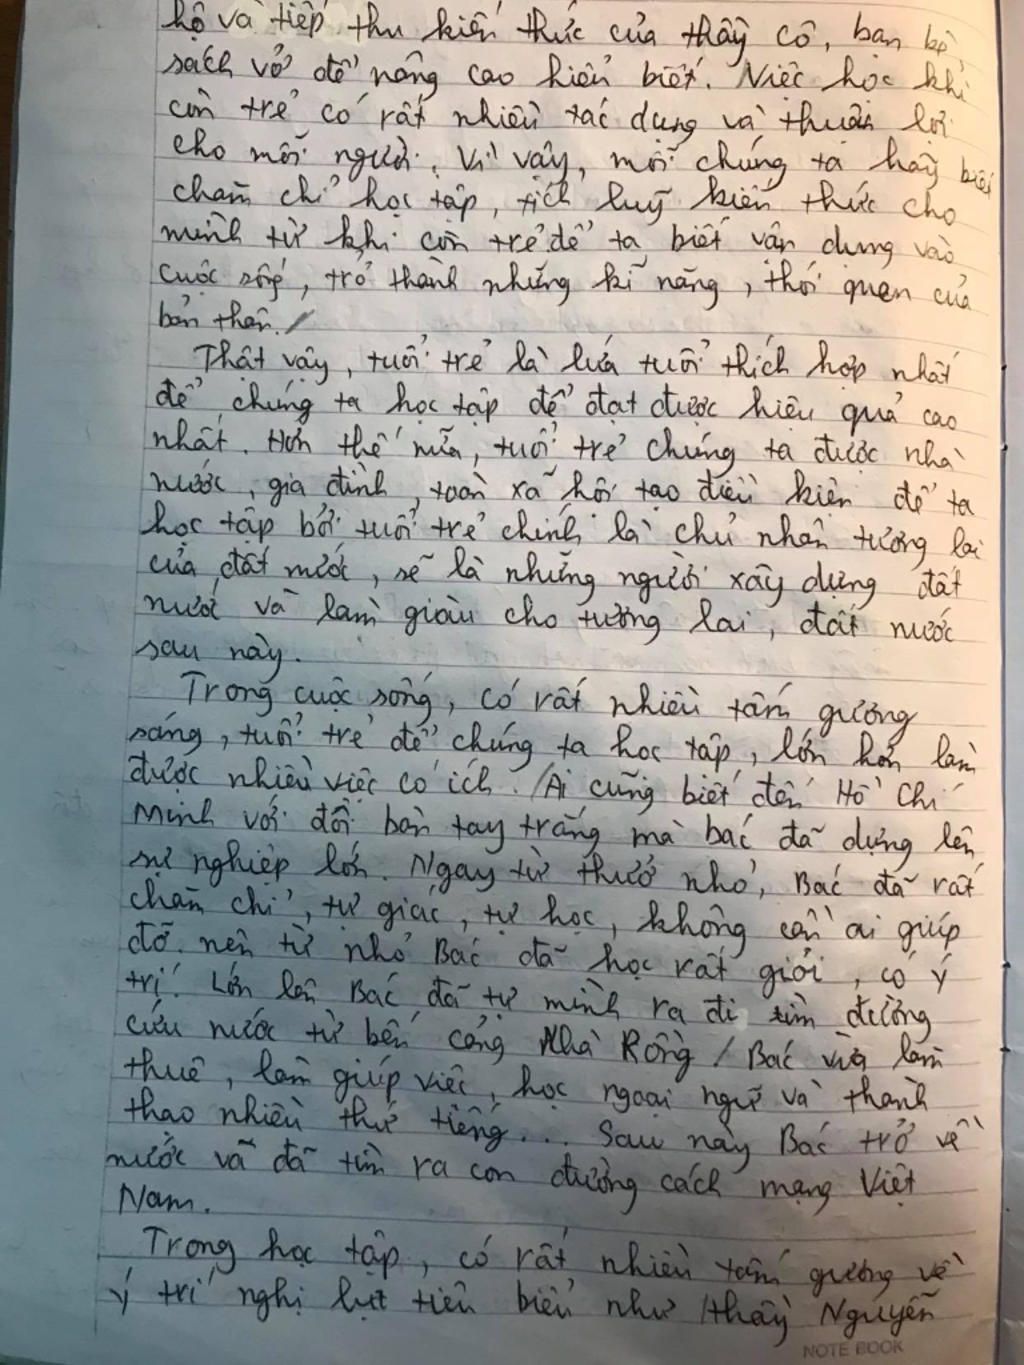 hộ và tiếp thu kiến thức của thầy cô, bạn bè
sách vở để nâng cao hiểu biết. Việc học khi
còn trẻ có rất nhiều tác dụng và thuận lợi
cho mỗi người. Vì vậy, mỗi chúng ta hãy biết
chăm chỉ học tập, tích luỹ kiến thức cho
mình từ khi còn trẻ để ta biết vận dụng vào
cuộc sống, trở thành những kĩ năng, thói quen của
bản thân./
Thật vậy, tuổi trẻ là lứa tuổi thích hợp nhất
để chúng ta học tập để đạt được hiệu quả cao
nhất. Hơn thế nữa, tuổi trẻ chúng ta được nhà
nước, gia đình, toàn xã hội tạo điều kiện để ta
học tập bởi tuổi trẻ chính là chủ nhân tương lai
của đất nước, sẽ là những người xây dựng đất
nước và làm giàu cho tương lai, đất nước
sau này.
Trong cuộc sống, có rất nhiều tấm gương
sáng, tuổi trẻ để chúng ta học tập, lớn hơn làm
được nhiều việc có ích. /Ai cũng biết đến Hồ Chí
Minh với đôi bàn tay trắng mà bác đã dựng lên
sự nghiệp lớn. Ngay từ thưở nhỏ, Bác đã rất
chăm chỉ, tự giác, tự học, không cần ai giúp
đỡ. nên từ nhỏ Bác đã học rất giỏi, có ý
trí. Lớn lên Bác đã tự mình ra đi tìm đường
cứu nước từ bến cảng Nhà Rồng / Bác vừa làm
thuê, làm giúp việc, học ngoại ngữ và thành
thạo nhiều thứ tiếng... Sau này Bác trở về
nước và đã tìm ra con đường cách mạng Việt
Nam.
Trong học tập, có rất nhiều tấm gương về
ý trí nghị lực tiêu biểu như /thầy Nguyễn
NOTE BOOK